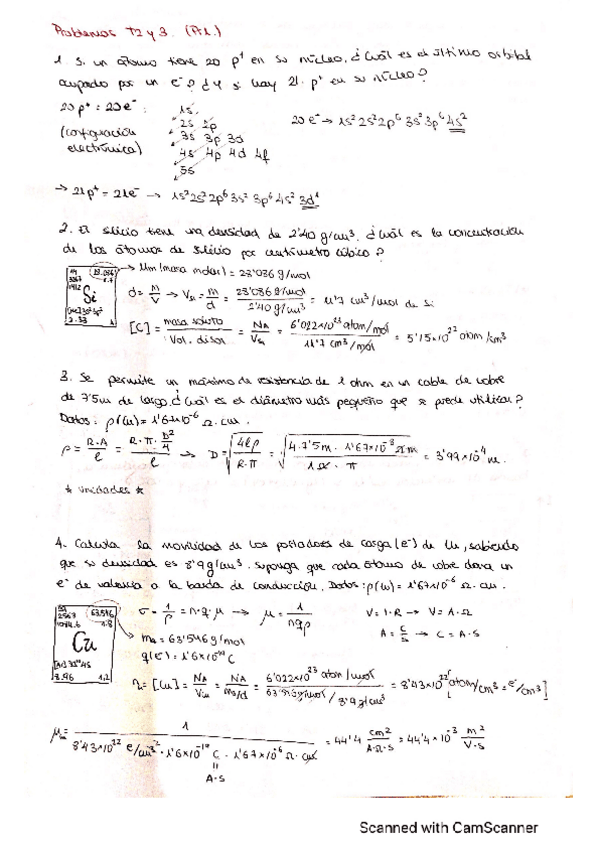 Problemas T2 y 3. (P.1.)
1. Si un átomo tiene 20 p⁺ en su núcleo, ¿Cuál es el último orbital
ocupado por un e⁻? ¿Y si hay 21 p⁺ en su núcleo?
20 p⁺ = 20 e⁻:
(configuración
electrónica)
1s
2s 2p
3s 3p 3d
4s 4p 4d 4f
5s
20 e⁻ → 1s² 2s² 2p⁶ 3s² 3p⁶ 4s²
→ 21 p⁺ = 21 e⁻ → 1s² 2s² 2p⁶ 3s² 3p⁶ 4s² 3d¹
2. El silicio tiene una densidad de 2'40 g/cm³. ¿Cuál es la concentración
de los átomos de silicio por centímetro cúbico?
14 28.086
Si
→ Mm (masa molar) = 28'086 g/mol
d = m/V → V_Si = m/d = 28'086 g/mol / 2'40 g/cm³ = 11'7 cm³/mol de Si
[C] = masa soluto / Vol. disol = NA / V_Si = 6'022×10²³ atom/mol / 11'7 cm³/mol = 5'15×10²² atom/cm³
3. Se permite un máximo de resistencia de 1 ohm en un cable de cobre
de 7'5m de largo. ¿Cuál es el diámetro más pequeño que se puede utilizar?
Datos: ρ(Cu) = 1'67×10⁻⁶ Ω·cm.
ρ = R·A / l = R·π·D²/4 / l → D = √(4lρ / R·π) = √(4·7'5m · 1'67×10⁻⁸ Ωm / 1Ω · π) = 3'99×10⁻⁴ m.
* unidades *
4. Calcula la movilidad de los portadores de carga (e⁻) de Cu, sabiendo
que su densidad es 8'9 g/cm³. Suponga que cada átomo de cobre dona un
e⁻ de valencia a la banda de conducción. Datos: ρ(Cu) = 1'67×10⁻⁶ Ω·cm.
63.546
Cu
σ = 1/ρ = n·q·μ → μ = 1/nqρ
V = I·R → V = A·Ω
A = C/s → C = A·S
ma = 63'546 g/mol
q(e) = 1'6×10⁻¹⁹ C
n = [Cu] = NA / V_Cu = NA / ma/d = 6'022×10²³ atom/mol / 63'546 g/mol / 8'9 g/cm³ = 8'43×10²² atom/cm³ = e⁻/cm³]
μ = 1 / 8'43×10²² e/cm³ · 1'6×10⁻¹⁹ C · 1'67×10⁻⁶ Ω·cm = 44'4 cm² / A·Ω·S = 44'4×10⁻³ m² / V·S
A·S
Scanned with CamScanner